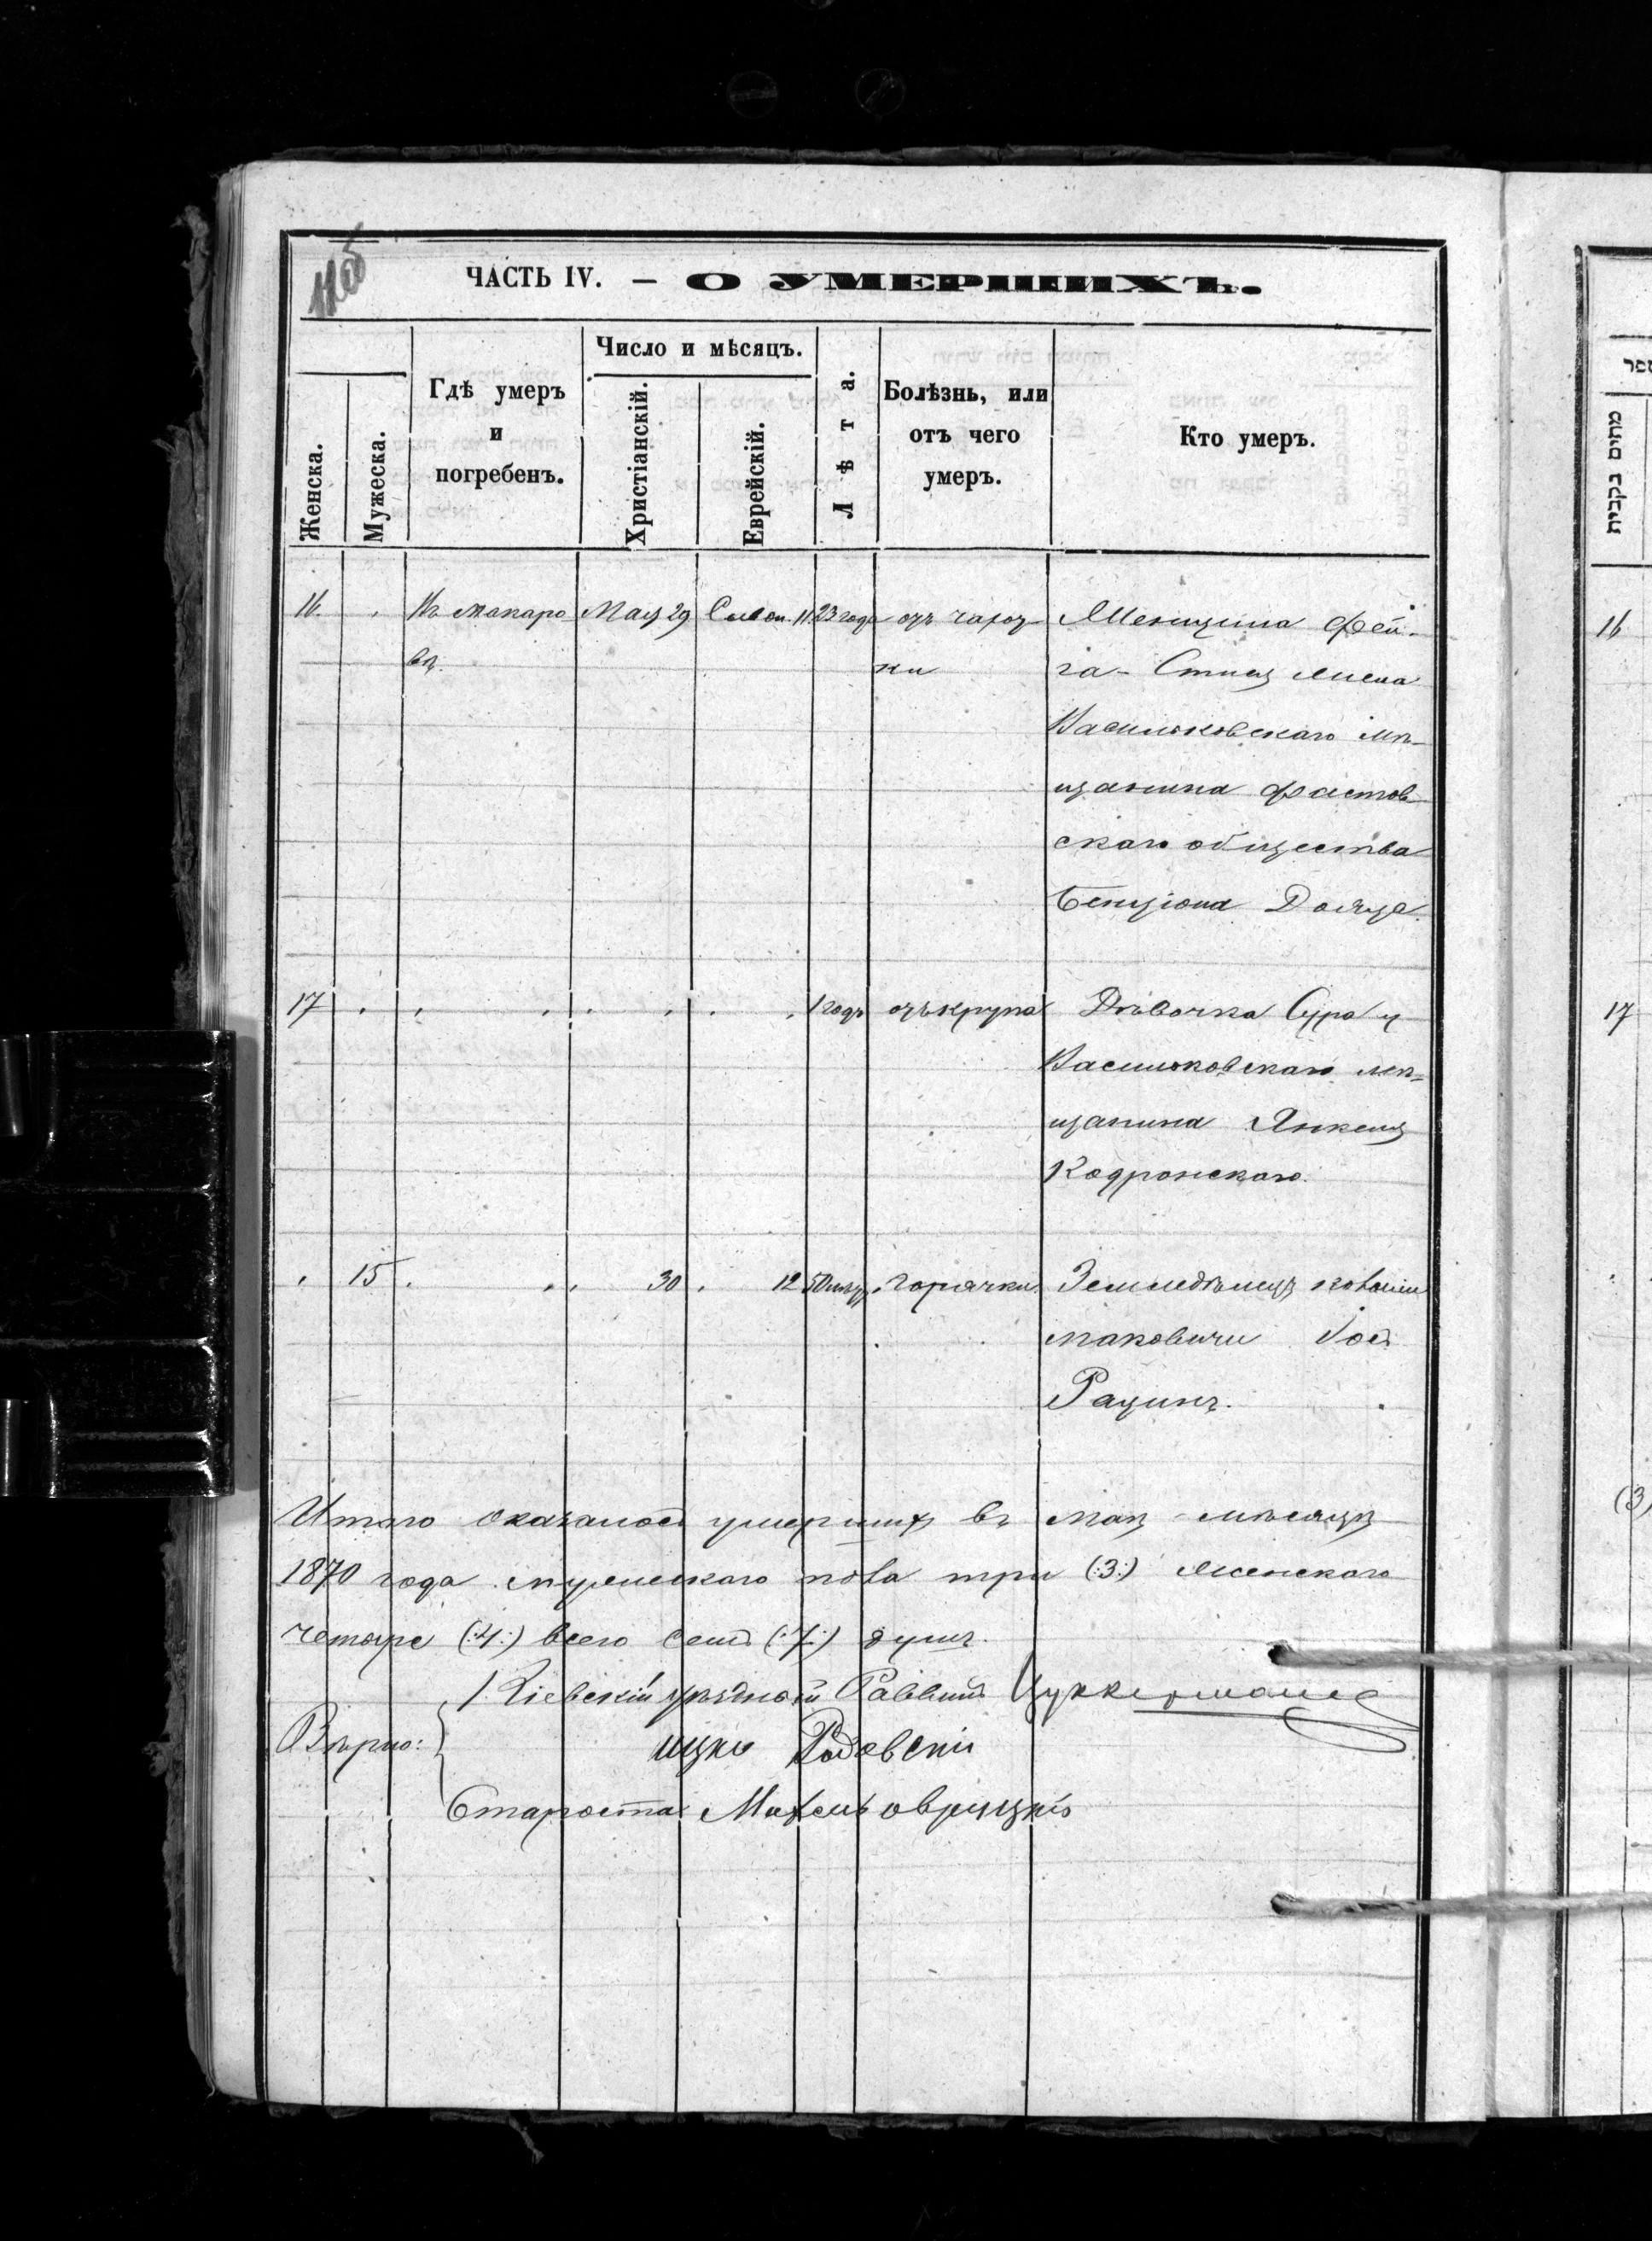 11об
ЧАСТЬ IV. — О УМЕРШИХЪ.
Женска.
Мужеска.
Гдѣ умеръ
и
погребенъ.
Число и мѣсяцъ.
Христіанскій.
Еврейскій.
Лѣта.
Болѣзнь, или
отъ чего
умеръ.
Кто умеръ.
16 Въ Макаро Мая 29 Сивон. 11 23 года отъ чахот Женщина Фей-
вѣ. ки га- жена
Васильковскаго мѣ-
щанина Фастов
скаго общества
Бенціона
17 1 годъ отъ крупа Дѣвочка Сура у
Васильковскаго мѣ-
щанина Янкеля
Кодронскаго.
15 30 12 50 лѣтъ горячки Земледѣлецъ колоніи
Маковичи Іось
Рацинъ.
Итого оказалось умершихъ въ маѣ мѣсяцѣ
1870 года мужескаго пола три (:3:) женскаго
четыре (:4:) всего семь (:7:) душъ.
Кіевскій уѣздный Раввинъ Цуккерманъ
Вѣрно:
Ицко Радовскій
Староста Овруцкій
מתים נקבות
16
17
(3)